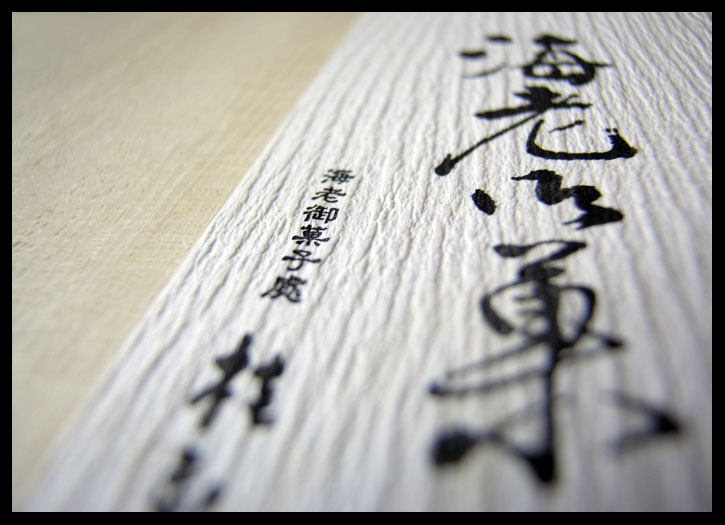 海老御菓
海老御菓子處
桂